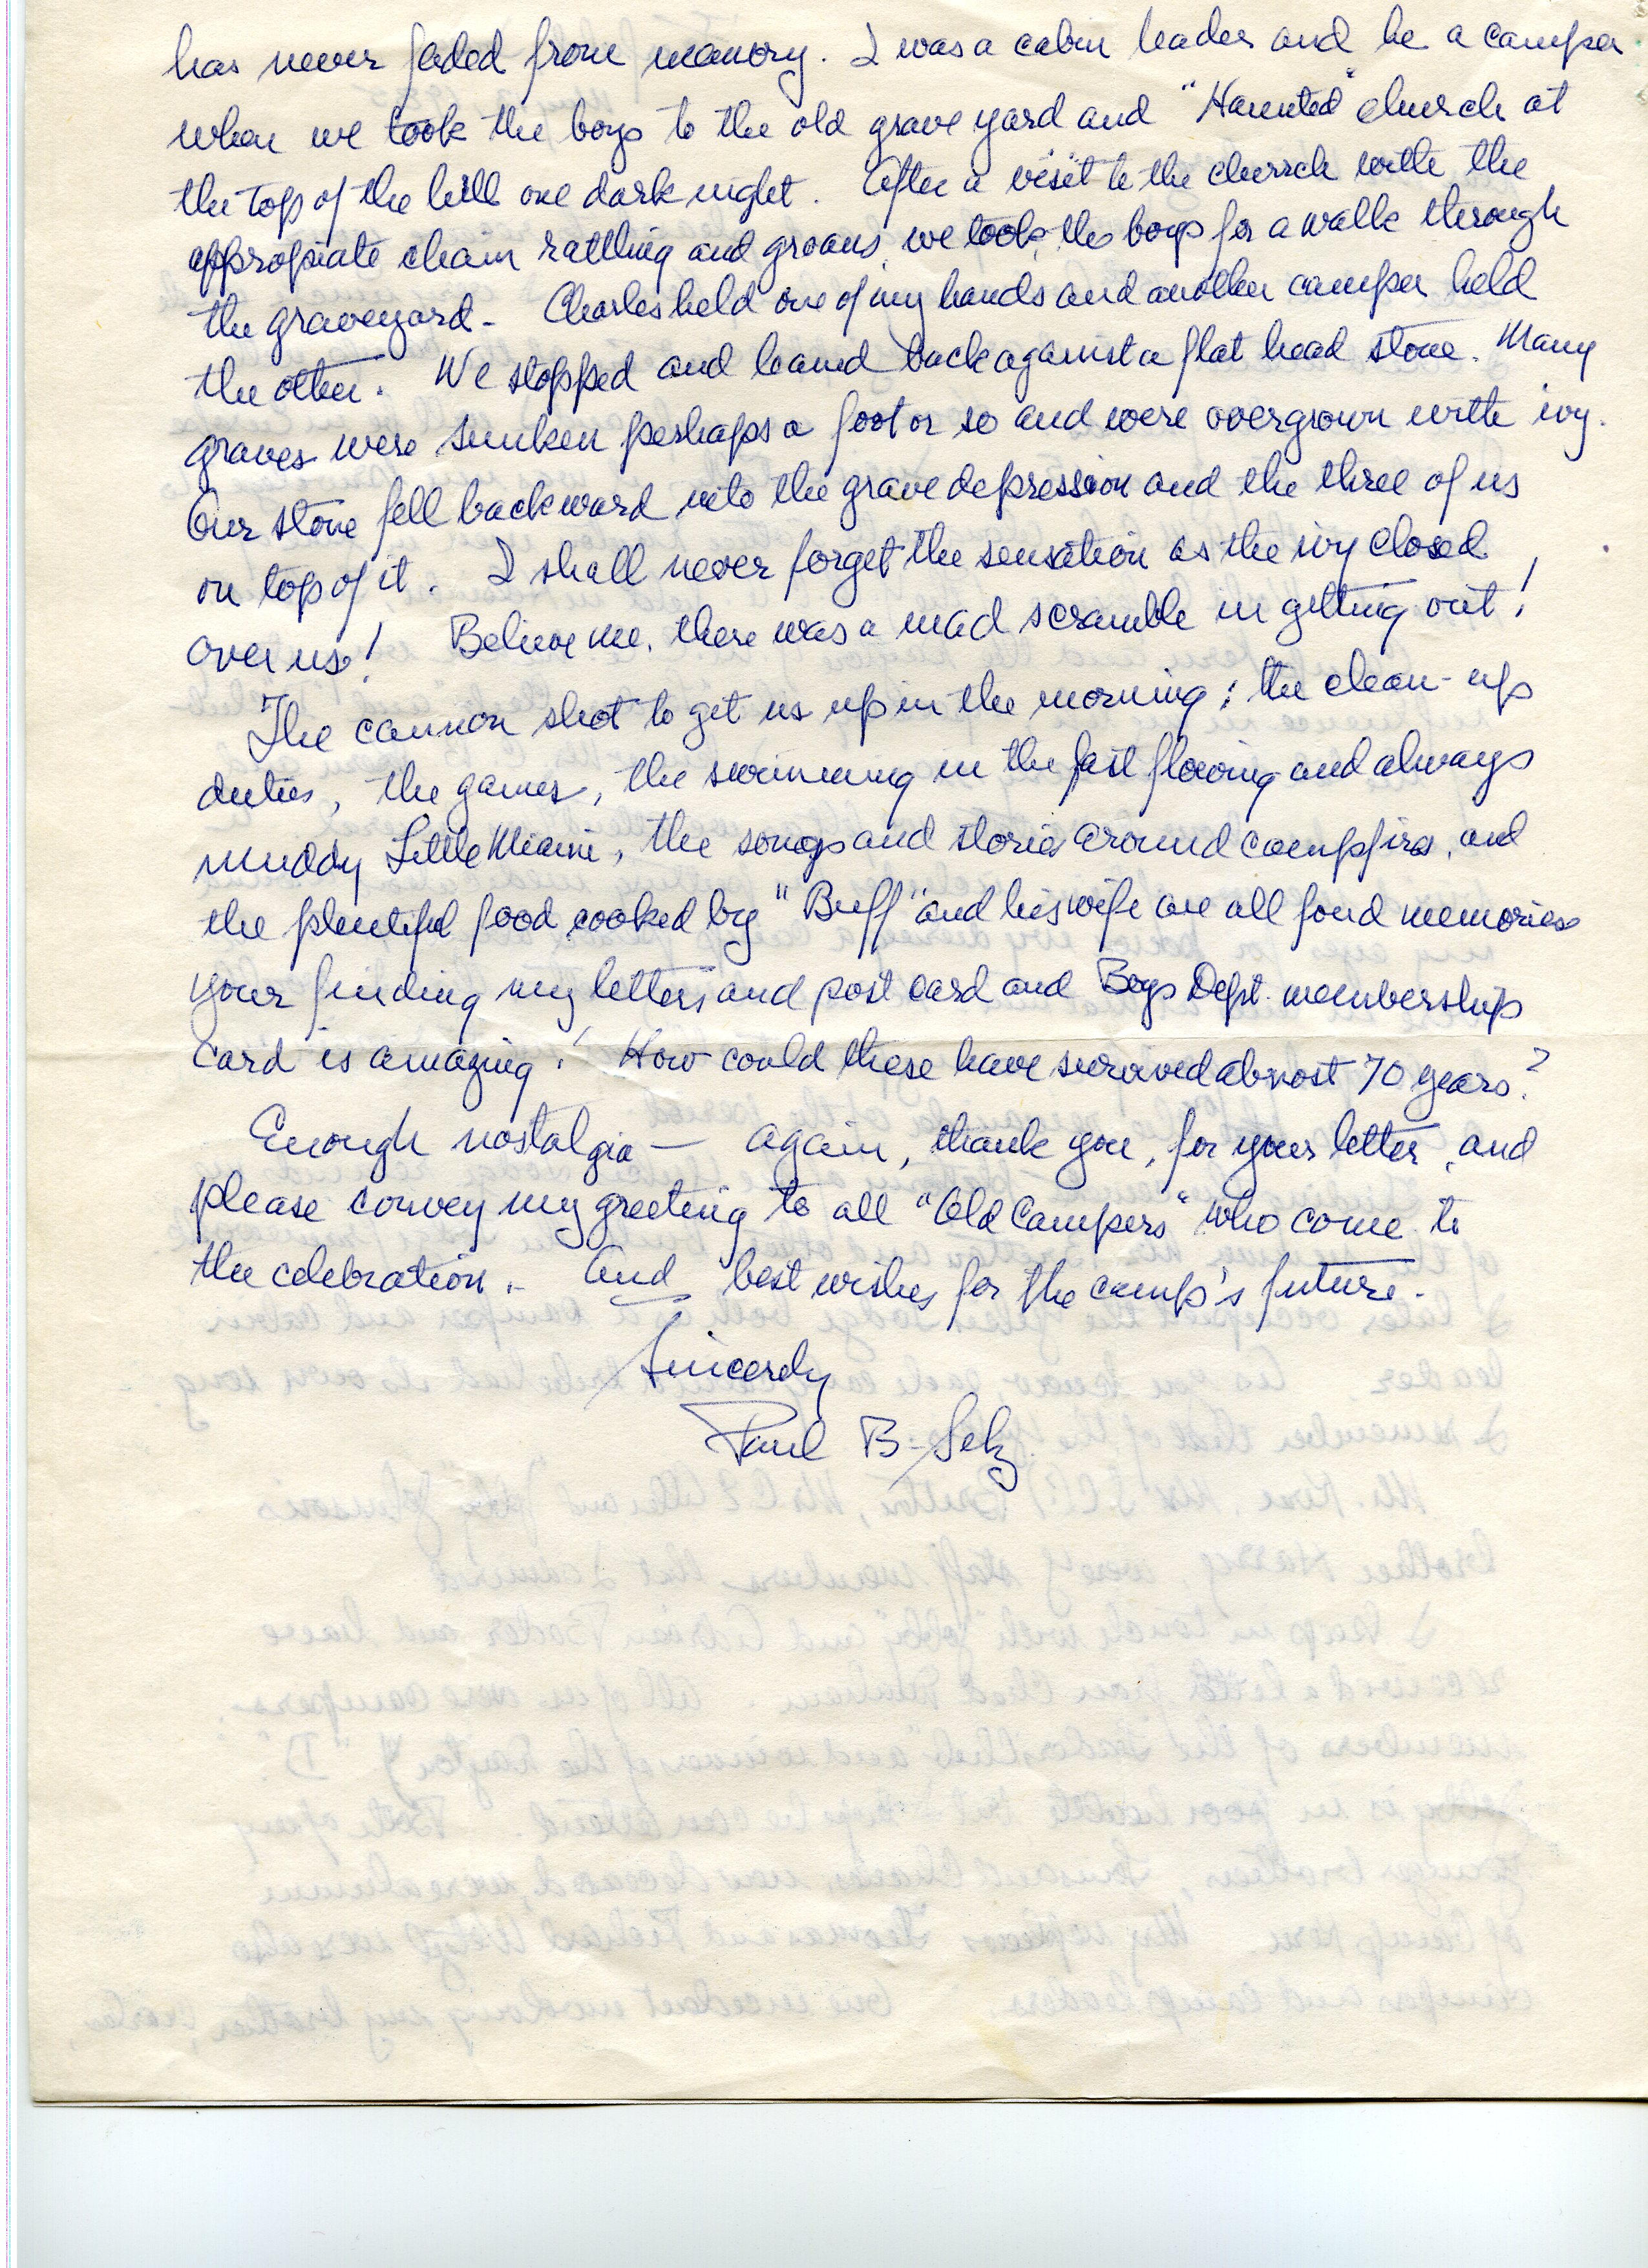 has never faded from memory. I was a cabin leader and he a camper
when we took the boys to the old grave yard and "Haunted" church at
the top of the hill one dark night. After a visit to the church with the
appropiate chain rattling and groans, we took the boys for a walk through
the graveyard - Charles held one of my hands and another camper held
the other. We stopped and leaned back against a flat head stone. Many
graves were sunken perhaps a foot or so and were overgrown with ivy.
Our stone fell backward into the grave depression and the three of us
on top of it. I shall never forget the sensation as the ivy closed
over us! Believe me, there was a mad scramble in getting out!
The cannon shot to get us up in the morning; the clean-up
duties, the games, the swimming in the fast flowing and always
muddy Little Miami, the songs and stories around campfires, and
the plentiful food cooked by "Buff" and his wife are all fond memories
your finding my letters and post card and Boys Dept. membership
card is amazing! How could these have survived almost 70 years?
Enough nostalgia — again, thank you, for your letter, and
please convey my greeting to all "Old Campers" who come to
the celebration. - And best wishes for the camp's future.
Sincerely
Paul B. Selz